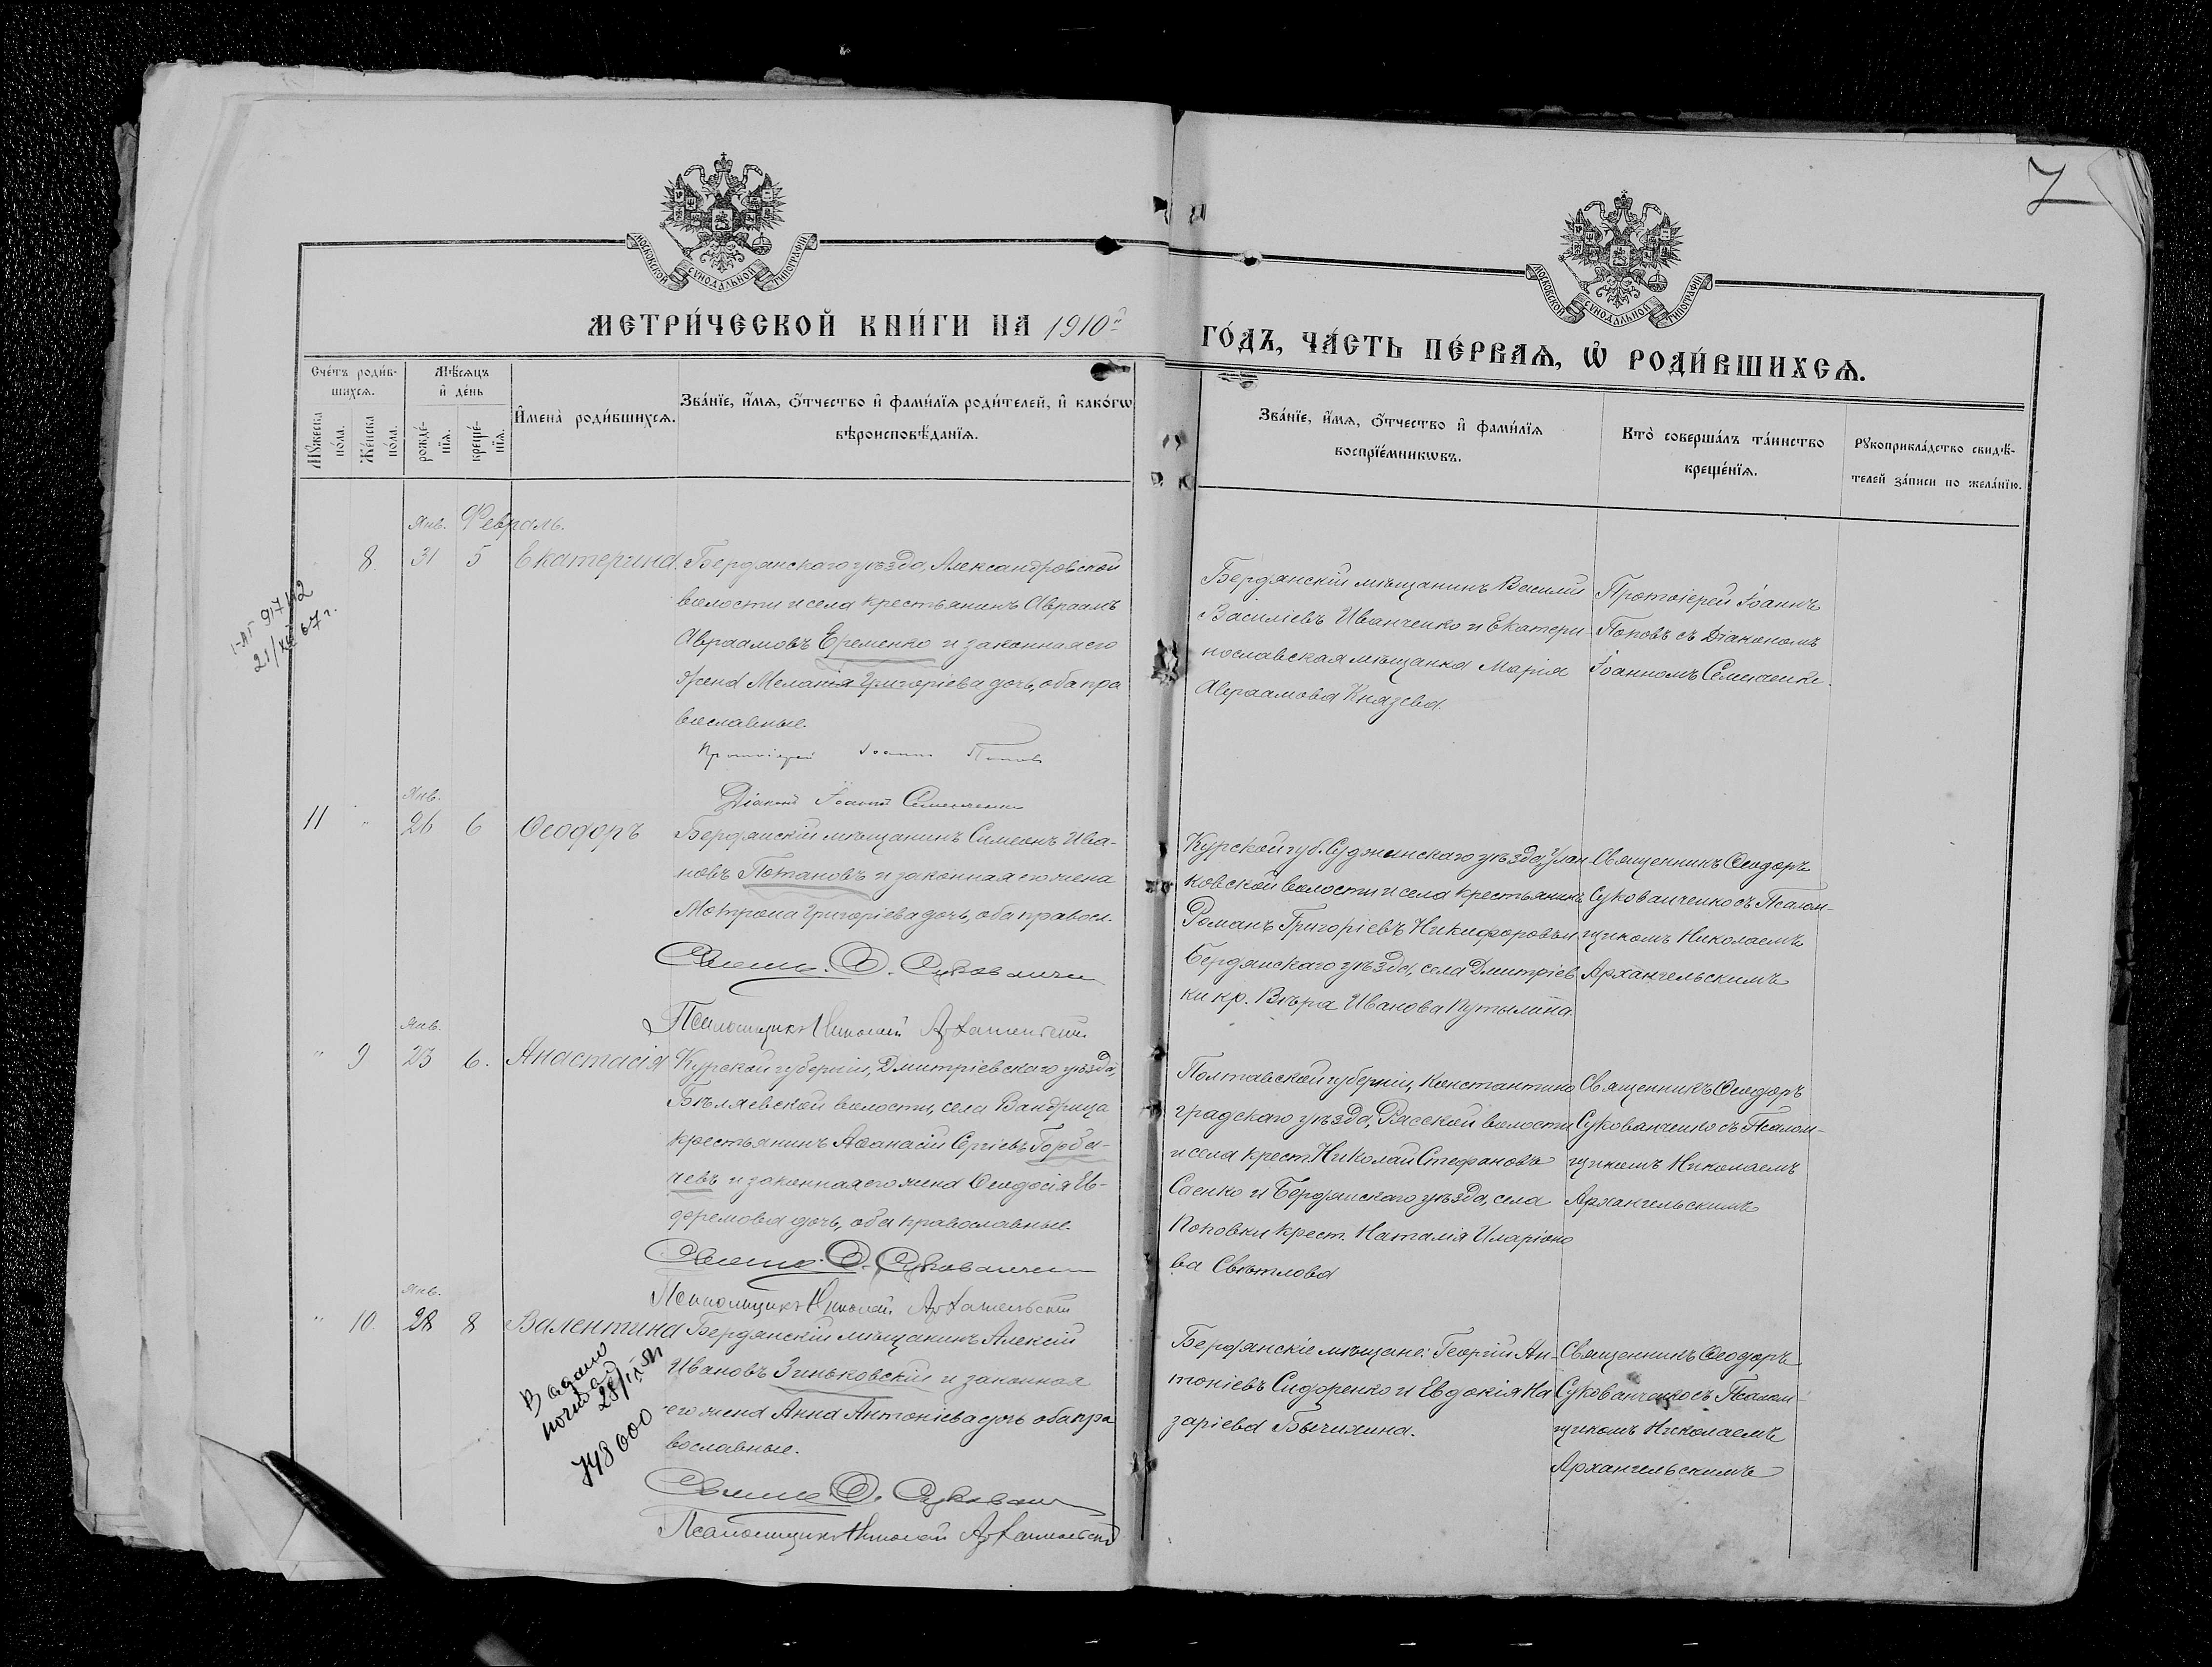 7
МОСКОВСКОЙ СУНОДАЛЬНОЙ ТИПОГРАФІИ
МОСКОВСКОЙ СУНОДАЛЬНОЙ ТИПОГРАФІИ
МЕТРИ́ЧЕСКОЙ КНИ́ГИ НА 1910й
ГО́ДЪ, ЧА́СТЬ ПЕ́РВАѦ, Ѡ҆ РОДИ́ВШИХСѦ.
Сче́тъ роди́в-
шихсѧ.
Мꙋ́жеска
по́ла.
Же́нска
по́ла.
Мѣ́сѧцъ
и҆ де́нь
рожде́-
нїѧ.
креще́-
нїѧ.
И҆мена̀ роди́вшихсѧ.
Зва́нїе, и҆́мѧ, ѻ҆́тчество и҆ фами́лїѧ роди́телей, и҆ како́гѡ
вѣроисповѣ́данїѧ.
Зва́нїе, и҆́мѧ, ѻ҆́тчество и҆ фами́лїѧ
воспрїе́мникѡвъ.
Кто̀ соверша́лъ та́инство
креще́нїѧ.
Рꙋкоприкла́дство свидѣ́-
телей за́писи по жела́нїю.
Янв. Февраль.
8. 31 5 Екатерина.
Бердянскаго уѣзда, Александровской
волости и села крестьянинъ Авраамъ
Авраамовъ Еременко и законная его
жена Меланія Григоріева дочь, оба пра
вославные.
Протоіерей Іоаннъ Поповъ
Діаконъ Іоаннъ Семененко
Бердянскій мѣщанинъ Василій
Василіевъ Иванченко и Екатери-
нославская мѣщанка Марія
Авраамова Князева.
Протоіерей Іоаннъ
Поповъ съ Діакономъ
Іоанномъ Семененко.
21/XI 67 г.
Янв.
11 " 26 6 Ѳеодоръ
Бердянскій мѣщанинъ Симеонъ Ива-
новъ Потаповъ и законная его жена
Мотрона Григоріева дочь, оба правосл.
Свящ. Ѳ. Сукованченко
Псаломщикъ Николай Архангельскій
Курской губ. Суджанскаго уѣзда, Улан
ковской волости и села крестьянинъ
Романъ Григоріевъ Никифоровъ и
Бердянскаго уѣзда, села Дмитріев
ки кр. Вѣра Иванова Путылина.
Священникъ Ѳеодоръ
Сукованченко съ Псалом-
щикомъ Николаемъ
Архангельскимъ
Янв.
" 9 23 6. Анастасія
Курской губерніи, Дмитріевскаго уѣзда,
Бѣляевской волости, села Вандрица
крестьянинъ Аѳанасій Сергіевъ Горба-
чевъ и законная его жена Ѳеодосія Еѵ-
фремова дочь, оба православные.
Свящ. Ѳ. Сукованченко
Псаломщикъ Николай Архангельскій
Полтавской губерніи, Константино
градскаго уѣзда, Рясской волости
и села крест. Николай Стефановъ
Саенко и Бердянскаго уѣзда, села
Поповки крест. Наталія Иларіоно
ва Свѣтлова
Священникъ Ѳеодоръ
Сукованченко съ Псалом-
щикомъ Николаемъ
Архангельскимъ
Янв.
" 10. 28 8 Валентина
Бердянскій мѣщанинъ Алексій
Ивановъ Зиньковскій и законная
его жена Анна Антоніева дочь оба пра
вославные.
Свящ. Ѳ. Сукованченко
Псаломщикъ Николай Архангельскій
Бердянскіе мѣщане: Георгій Ан-
тоніевъ Сидоренко и Евдокія На
заріева Бычихина.
Священникъ Ѳеодоръ
Сукованченко съ Псалом-
щикомъ Николаемъ
Архангельскимъ
748000